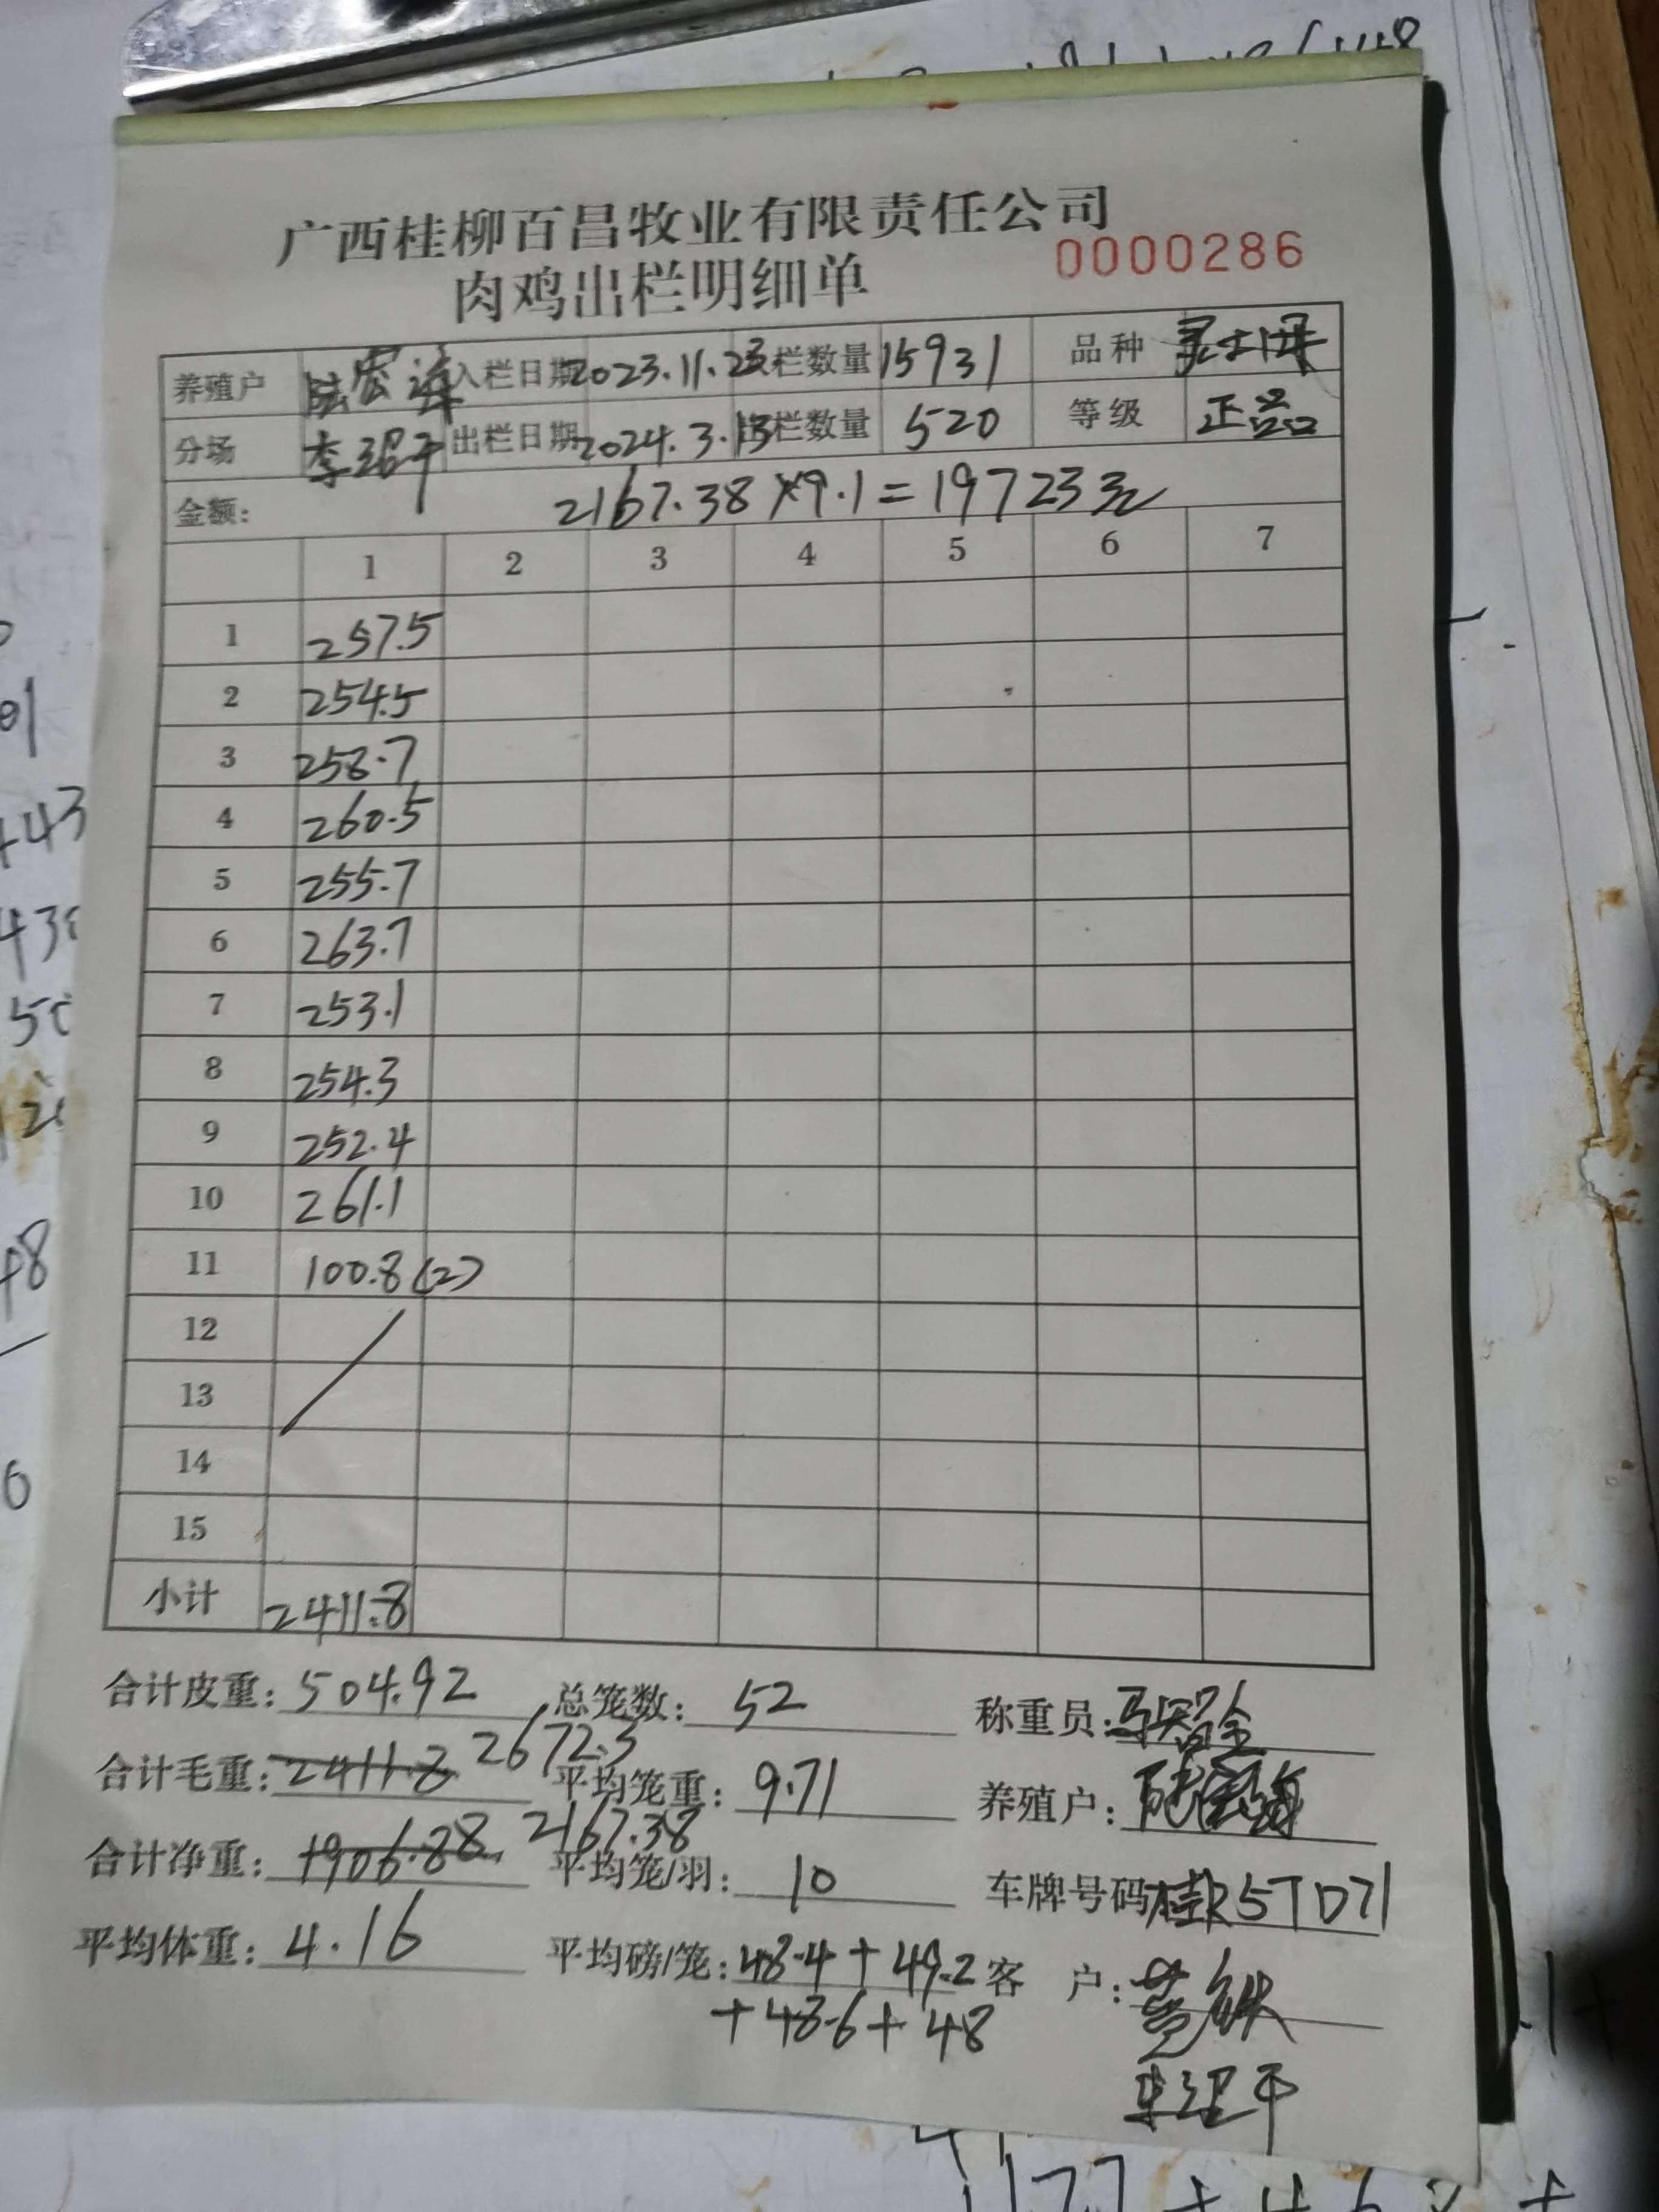 广西桂柳百昌牧业有限责任公司
肉鸡出栏明细单 0000286
养殖户 陆宏海 入栏日期 2023.11.23 栏数量 15931 品种
分场 李绍干 出栏日期 2024.3.13 出栏数量 520 等级 正品
金额: 2167.38×9.1=19723元
1 2 3 4 5 6 7
1 257.5
2 254.5
3 258.7
4 260.5
5 255.7
6 263.7
7 253.1
8 254.3
9 252.4
10 261.1
11 100.8(2)
12
13
14
15
小计 2411.8
合计皮重: 504.92 总笼数: 52 称重员:
合计毛重: 2411.8 2672.3 平均笼重: 9.71 养殖户:
合计净重: 1906.88 2167.38 平均笼/羽: 10 车牌号码 桂R5TD71
平均体重: 4.16 平均磅/笼: 48.4+49.2 客 户:
+48.6+48